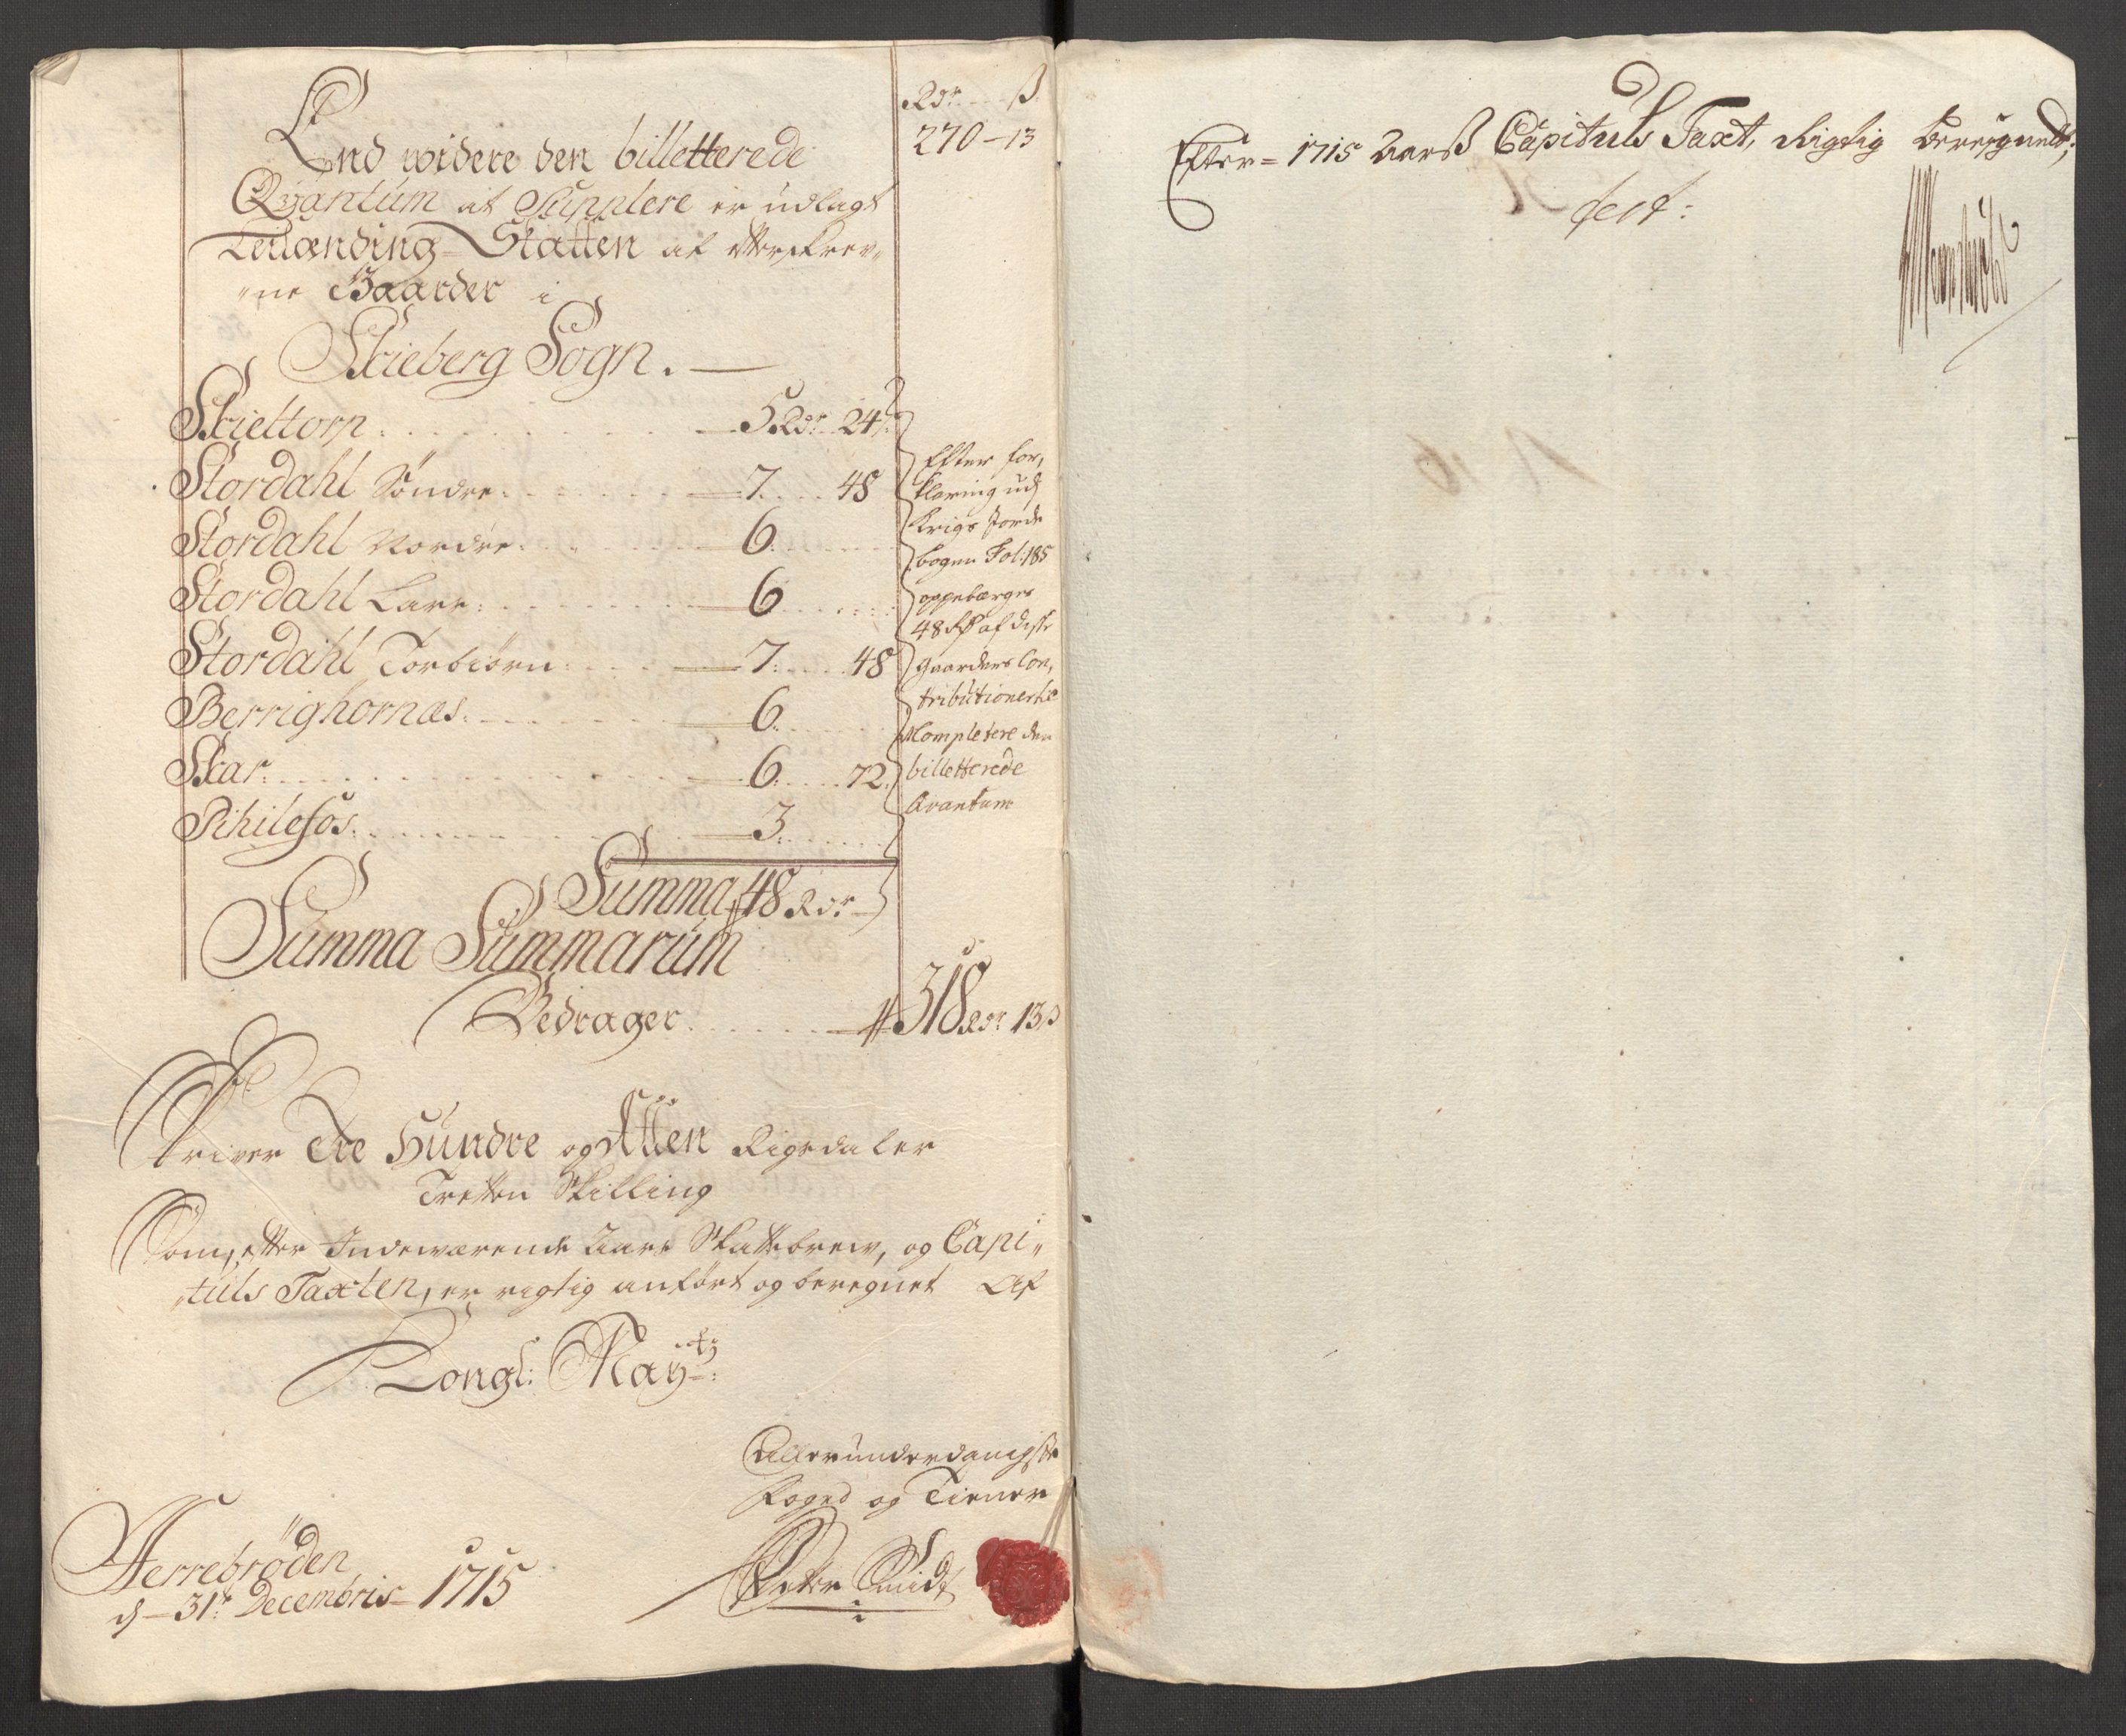 Rdr ß
270-13
End widere den billetterede
Qvantum at Supplere er udlagt
Leilænding-Skatten af efterskrev-
"ne Gaarder i
Skieberg Sogn.
Skieltorp. 5 Rdr 24 ß
Stordahl Søndre. 7. 48
Stordahl Nordre. 6.
Stordahl Lars: 6
Stordahl Torbiørn: 7. 48
Berrighornæs. 6.
Skar. 6. 72.
Pihilefos. 3.
Efter for,
klaring udj
Krigs Jorde
bogen Fol: 185
oppebærges
48 Rdr af disse
gaarders Con,
tributioner at
Completere den
billetterede
Qvantum
Summa 48 Rdr
Summa Summarum
Bedrager. 318 Rdr 13 ß
Skriver Tre Hundre og Atten Rigsdaler
Tretten Skilling
Som, efter Indeværende Aars Skattebrew, og Capi"
"tuls Taxten, er rigtig anført og beregnet Af
Kongl: May:tz
Allerunderdanigste
Foged og Tiener
Peter Smidt
Herrebrøden
d - 31t Decembris - 1715
Efter = 1715 Aarß Capituls Taxt, Rigtig beregnet;
test: